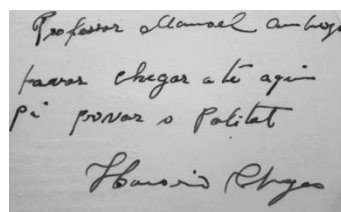 Professor Manoel Ambrogi
favor chegar até aqui
pi provar o Palitat
Honorio Chagas